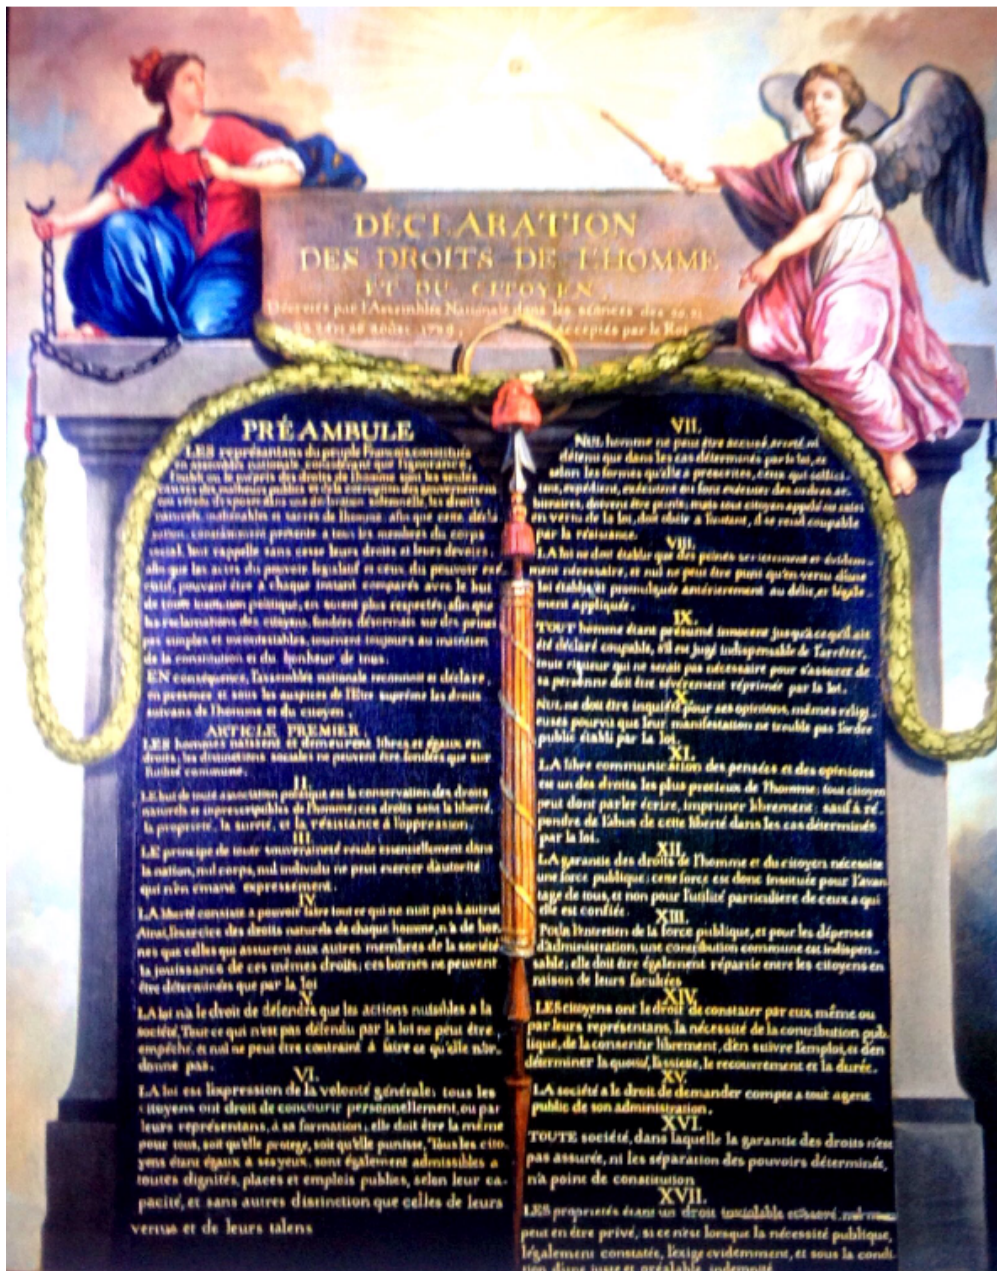 DÉCLARATION
DES DROITS DE L'HOMME
ET DU CITOYEN
Décrétés par l'Assemblée Nationale dans les séances des
août 1789, acceptés par le Roi
PRÉAMBULE
LES représentans du peuple François constitués
en assemblée nationale, considérant que l'ignorance
l'oubli, ou le mépris des droits de l'homme sont les seules
causes des malheurs publics et de la corruption des gouvernemens
les droits
naturels, inaliénables et sacrés de l'homme; afin que cette décla
constamment présente à tous les membres du corps
social, leur rappelle sans cesse leurs droits et leurs devoirs;
afin que les actes du pouvoir législatif et ceux du pouvoir exé
cutif, pouvant être à chaque instant comparés avec le but
de toute institution politique, en soient plus respectés; afin que
les réclamations des citoyens, fondées désormais sur des princi
simples et incontestables, tournent toujours au maintien
de la constitution et du bonheur de tous.
EN conséquence, l'assemblée nationale reconnoit et déclare,
en présence et sous les auspices de l'Etre suprême les droits
suivans de l'homme et du citoyen.
ARTICLE PREMIER.
LES hommes naissent et demeurent libres et égaux en
droits; les distinctions sociales ne peuvent être fondées que sur
l'utilité commune.
II.
LE but de toute association politique est la conservation des droits
naturels et inprescriptibles de l'homme; ces droits sont la liberté,
la propriété, la sureté, et la résistance à l'oppression.
III.
LE principe de toute souveraineté réside essentiellement dans
la nation, nul corps, nul individu ne peut exercer d'autorité
qui n'en émane expressément.
IV.
LA liberté consiste à pouvoir faire tout ce qui ne nuit pas à autrui
Ainsi, l'exercice des droits naturels de chaque homme, n'a de bor
nes que celles qui assurent aux autres membres de la société
la jouissance de ces mêmes droits; ces bornes ne peuvent
être déterminées que par la loi
V.
LA loi n'a le droit de défendre que les actions nuisibles a la
société. Tout ce qui n'est pas défendu par la loi ne peut être
empêché, et nul ne peut être contraint à faire ce qu'elle n'or-
donne pas.
VI.
LA loi est l'expression de la volonté générale; tous les
citoyens ont droit de concourir personnellement, ou par
leurs représentans, à sa formation; elle doit être la même
pour tous, soit qu'elle protege, soit qu'elle punisse. Tous les cito-
yens étant égaux à ses yeux, sont également admissibles a
toutes dignités, places et emplois publics, selon leur ca-
pacité, et sans autres distinction que celles de leurs
vertus et de leurs talens
VII.
NUL homme ne peut être accusé, arreté, ni
détenu que dans les cas déterminés par la loi, et
selon les formes qu'elle a prescrites, ceux qui sollici
tent, expédient, exécutent ou font exécuter des ordres ar-
bitraires, doivent être punis; mais tout citoyen appelé ou saisi
en vertu de la loi, doit obéir a l'instant, il se rend coupable
par la résistance.
VIII.
LA loi ne doit établir que des peines strictement et évidem-
ment nécessaire, et nul ne peut être puni qu'en vertu d'une
loi établie et promulguée antérieurement au délit, et légale-
ment appliquée.
IX.
TOUT homme étant présumé innocent jusqu'à ce qu'il ait
été déclaré coupable, s'il est jugé indispensable de l'arrêter,
toute rigueur qui ne serait pas nécessaire pour s'assurer de
sa personne doit être sévèrement réprimée par la loi.
X.
NUL ne doit être inquiété pour ses opinions, mêmes religi-
euses pourvu que leur manifestation ne trouble pas l'ordre
public établi par la loi.
XI.
LA libre communication des pensées et des opinions
est un des droits les plus precieux de l'homme; tout citoyen
peut donc parler écrire, imprimer librement; sauf à ré-
pondre de l'abus de cette liberté dans les cas déterminés
par la loi.
XII.
LA garantie des droits de l'homme et du citoyen nécessite
une force publique; cette force est donc instituée pour l'avan
tage de tous, et non pour l'utilité particuliere de ceux a qui
elle est confiée.
XIII.
Pour l'entretien de la force publique, et pour les dépenses
d'administration, une contribution commune est indispen-
sable; elle doit être également répartie entre les citoyens en
raison de leurs facultées
XIV.
LES citoyens ont le droit de constater par eux même ou
par leurs représentans, la nécessité de la contribution pub-
lique, de la consentir librement, d'en suivre l'emploi, et d'en
déterminer la quotité, l'assiette, le recouvrement et la durée.
XV.
LA société a le droit de demander compte a tout agent
public de son administration.
XVI.
TOUTE société, dans laquelle la garantie des droits n'est
pas assurée, ni les séparation des pouvoirs déterminée,
n'a point de constitution
XVII.
LES proprietés étant un droit inviolable et sacré, nul ne
peut en être privé, si ce n'est lorsque la nécessité publique,
légalement constatée, l'exige evidemment, et sous la condi-
tion d'une juste et préalable indemnité